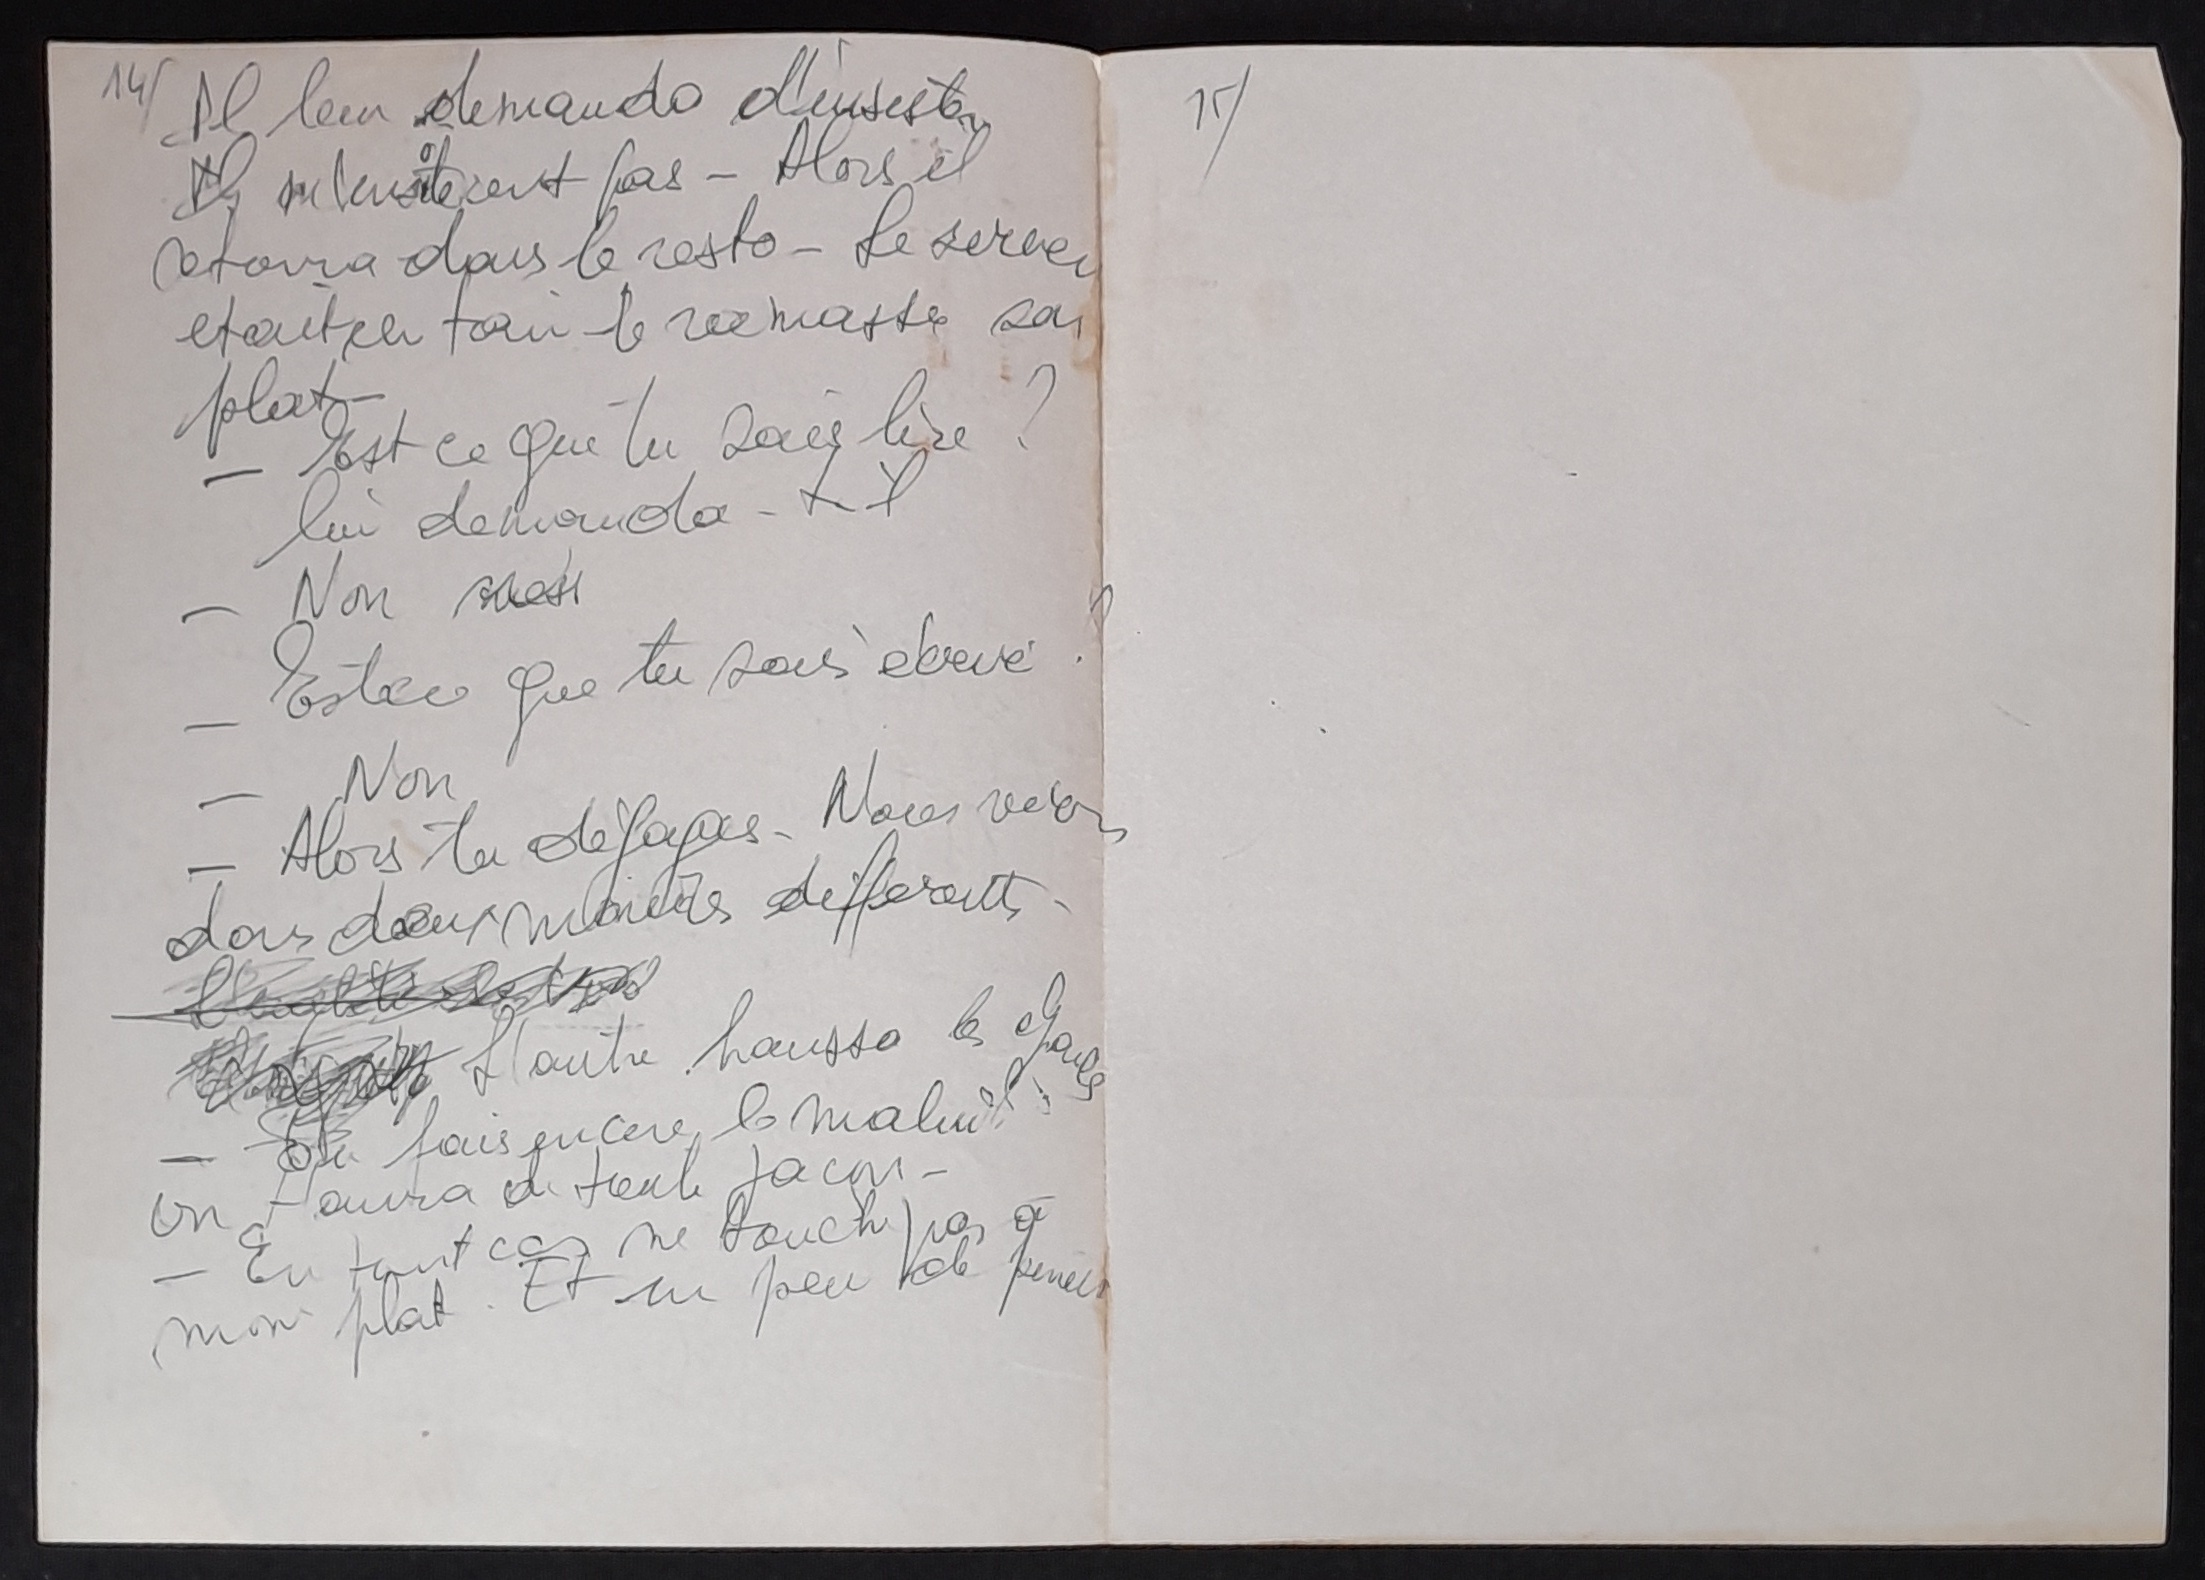 14/ Il leur demanda d'insister
Ils n'insistèrent pas - Alors il
retourna dans le resto - Le serveur
etait en train de ramasser son
plat -
- Est ce que tu sais lire ?
lui demanda-t-il
- Non
- Est ce que tu sais écrire ?
- Non
- Alors tu dégages. Nous vivons
dans deux mondes differents -
L'autre haussa les épaules
- Tu fais encore le malin !
On t'aura de toute façon -
- En tout cas ne touche pas à
mon plat. Et un peu de
15/